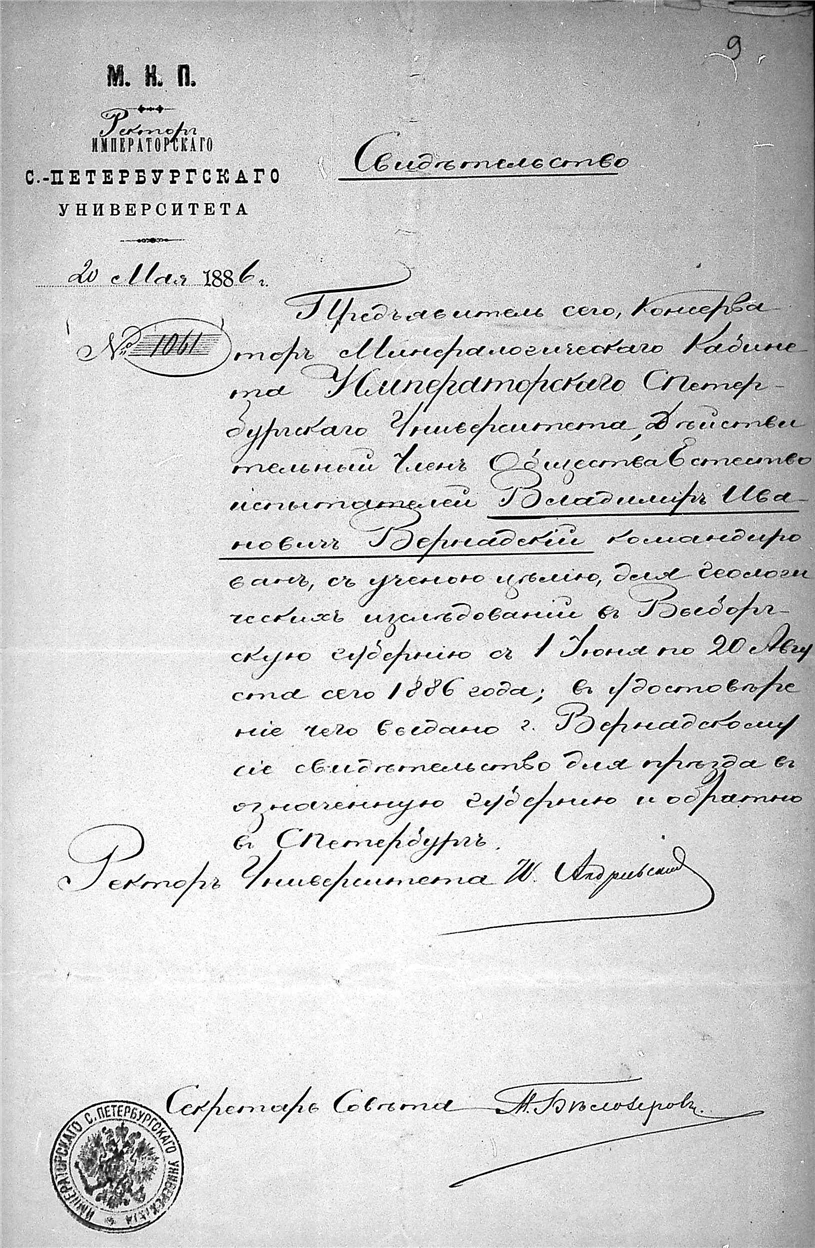 9
М. Н. П.
Ректоръ
ИМПЕРАТОРСКАГО
С.-ПЕТЕРБУРГСКАГО
УНИВЕРСИТЕТА
20 Мая 1886 г.
№ 1061
Свидѣтельство
Предъявитель сего, Консерва
торъ Минералогическаго Кабине
та Императорскаго СПетер-
бургскаго Университета, Дѣйстви
тельный Членъ Общества Естество
испытателей Владимиръ Ива-
новичъ Вернадскій командиро
ванъ, съ ученою цѣлію, для геологи
ческихъ изслѣдованій въ Выборг-
скую губернію съ 1 Июня по 20 Авгу
ста сего 1886 года; въ удостовѣре
ніе чего выдано г. Вернадскому
сіе свидѣтельство для проѣзда въ
означенную губернію и обратно
въ СПетербургъ.
Ректоръ Университета И. Андреевский
Секретарь Совѣта Бѣлозеровъ.
ИМПЕРАТОРСКАГО С. ПЕТЕРБУРГСКАГО УНИВЕРСИТЕТА